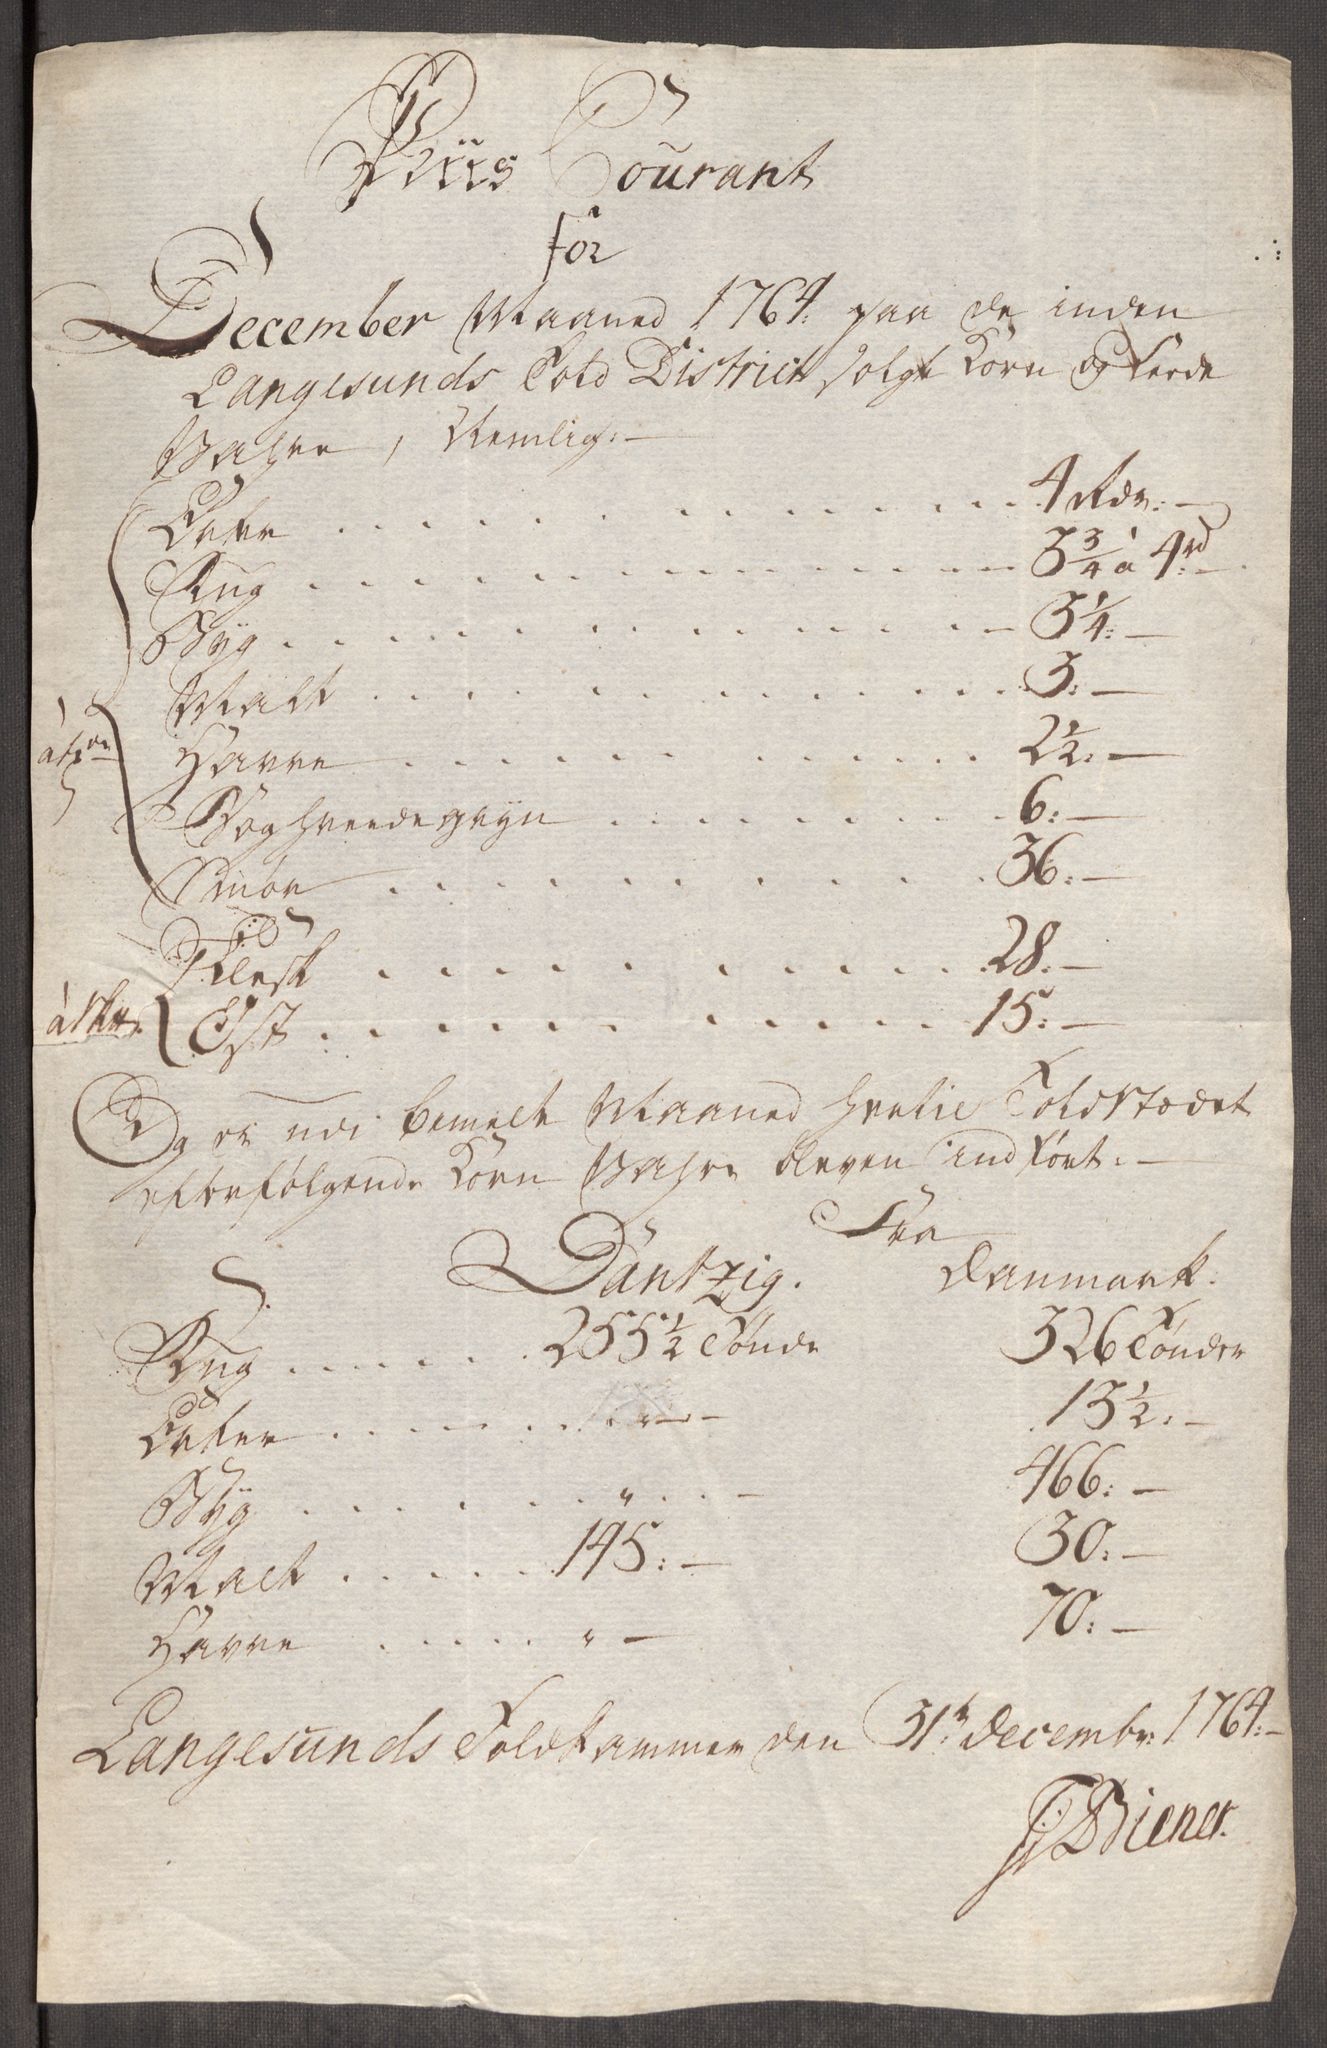 Priis Courant
for
December Maaned 1764. paa de inden
Langesunds Told District solgt Korn og Fede
Vahre, Nemlig:
Erter . . . 4 Rdr:
Rug . . . 3 3/4 à 4 rd:
Byg . . . 3 1/4:
Malt . . . 3:
à tøn Havre . . . 2 1/2:
Boghvedegryn . . . 6:
Smør . . . 36:
Flesk . . . 28:
Ost . . . 15:
Og er udi bemelte Maaned hertil Toldstædet
efterfølgende Korn Vahre bleven indført:
Fra
Dantzig. Danmark.
Rug . . . 255 1/2 Tønde 326 Tønder
Erter . . . " 13 1/2:
Byg . . . " 466:
Malt . . . 145: 30:
Havre . . . " 70:
Langesunds Toldkammer den 31te Decembr: 1764:
Biener.